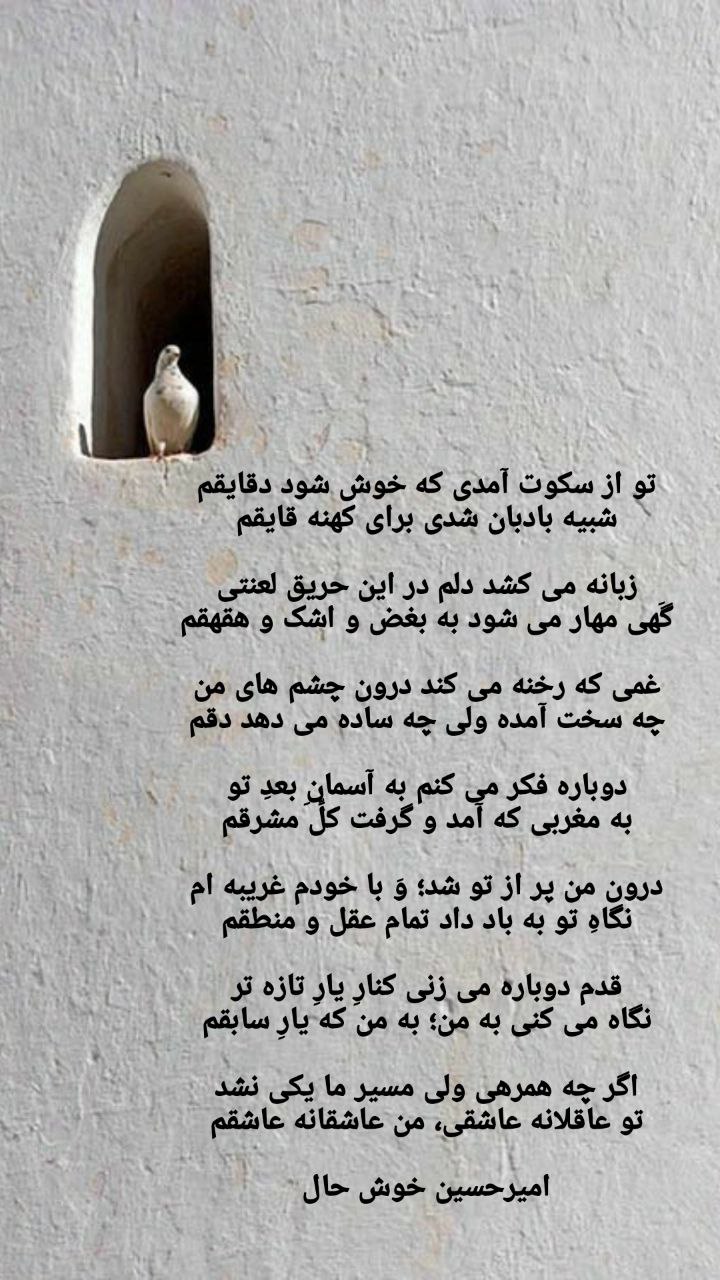 تو از سکوت آمدی که خوش شود دقایقم
شبیه بادبان شدی برای کهنه قایقم
زبانه می کشد دلم در این حریق لعنتی
گَهی مهار می شود به بغض و اشک و هقهقم
غمی که رخنه می کند درون چشم های من
چه سخت آمده ولی چه ساده می دهد دقم
دوباره فکر می کنم به آسمانِ بعدِ تو
به مغربی که آمد و گرفت کلِّ مشرقم
درون من پر از تو شد؛ وَ با خودم غریبه ام
نگاهِ تو به باد داد تمام عقل و منطقم
قدم دوباره می زنی کنارِ یارِ تازه تر
نگاه می کنی به من؛ به من که یارِ سابقم
اگر چه همرهی ولی مسیر ما یکی نشد
تو عاقلانه عاشقی، من عاشقانه عاشقم
امیرحسین خوش حال